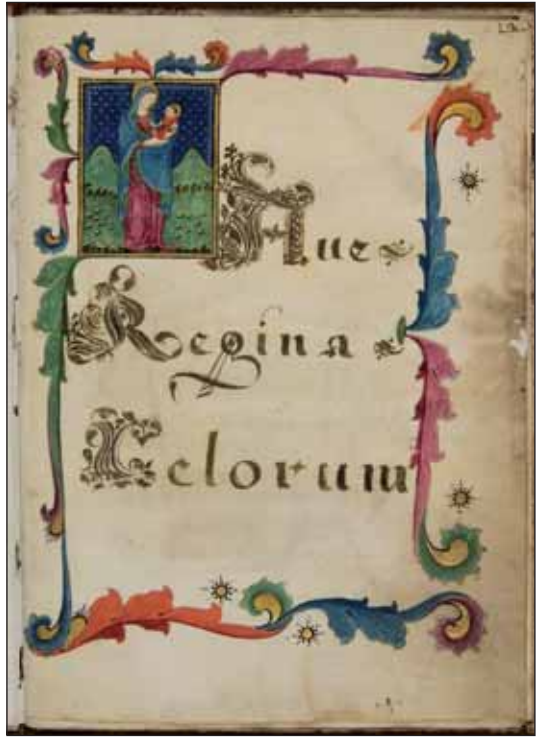 Aue
Regina
Celorum